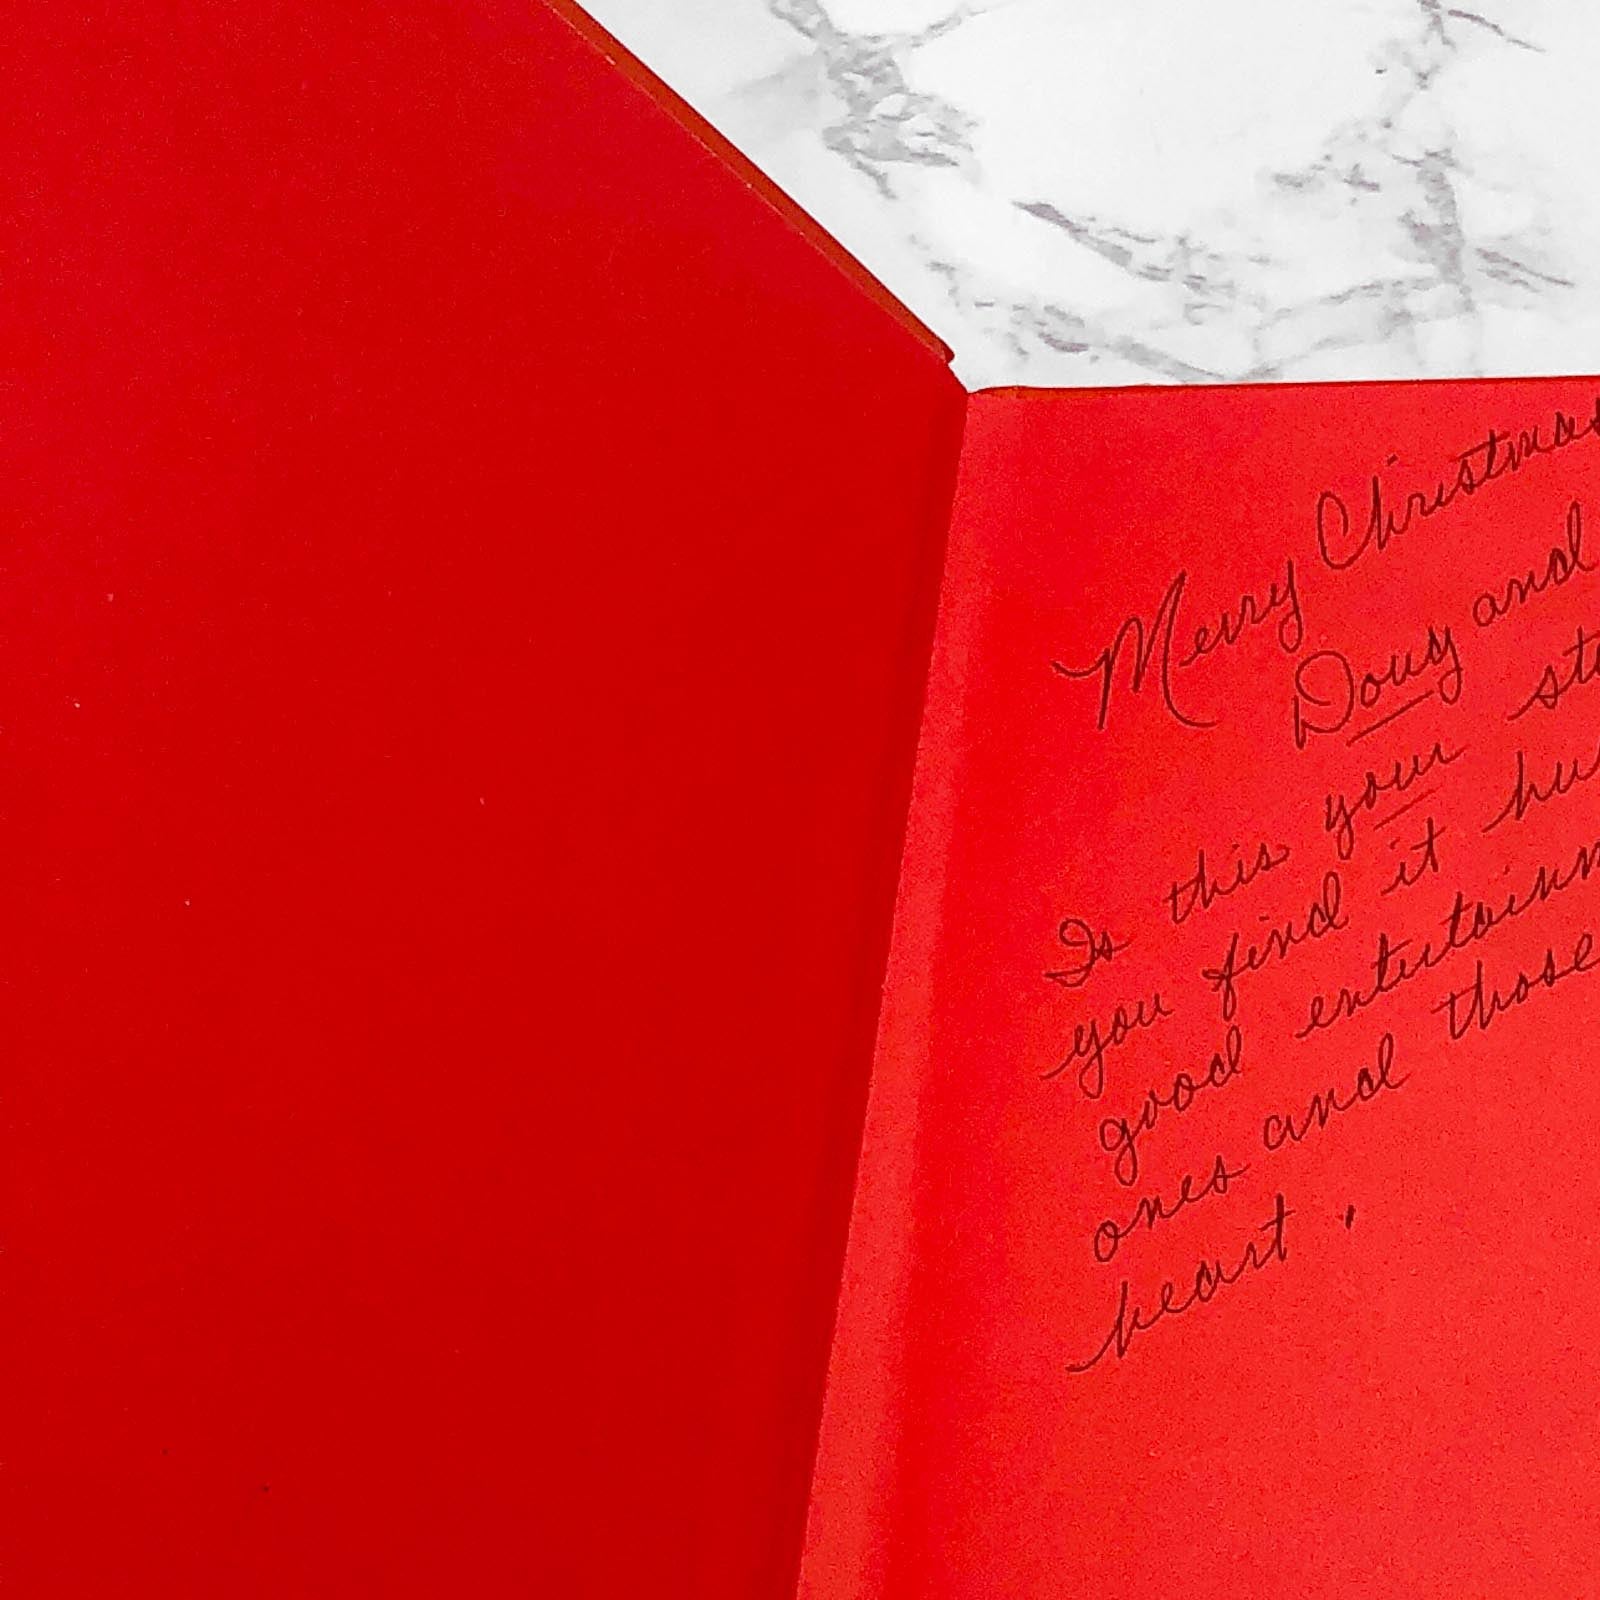 Merry Christmas
Doug and
Is this your
you find it
good
ones and those
heart.